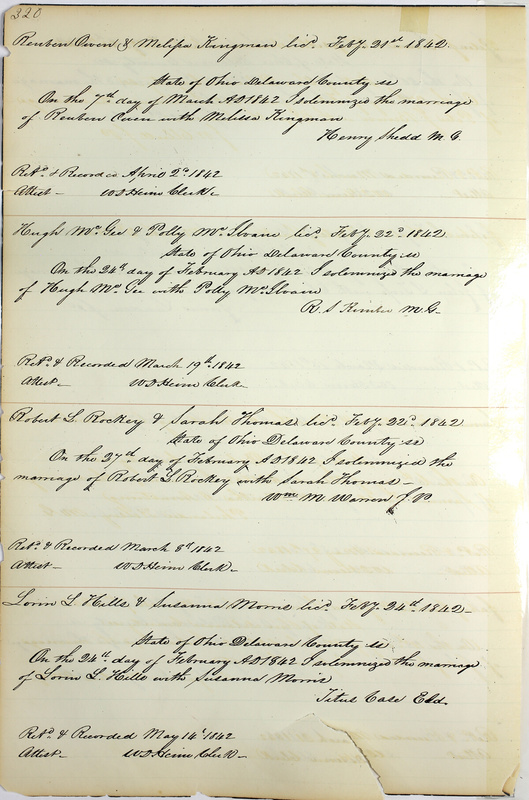 320
Reuben Owen & Melissa Kingman lic.d Feby. 21st 1842.
State of Ohio Delaware County ss
On the 7th day of March AD 1842 I solemnized the marriage
of Reuben Owen with Melissa Kingman
Henry Shedd M. G.
Retd. & Recorded April 2d 1842
Attest — W D Heim Clerk
Hugh Mc.Gee & Polly Mc.Ilvain lic.d Feby. 22d 1842
State of Ohio Delaware County ss
On the 24th day of February AD 1842 I solemnized the marriage
of Hugh Mc.Gee with Polly Mc.Ilvain
R. S. Kimber M. G.
Retd. & Recorded March 19th 1842
Attest — W D Heim Clerk
Robert L. Rockey & Sarah Thomas lic.d Feby. 22d 1842
State of Ohio Delaware County ss
On the 27th day of February AD 1842 I solemnized the
marriage of Robert L. Rockey with Sarah Thomas —
Wm M. Warren J. P.
Retd. & Recorded March 8th 1842
Attest — W D Heim Clerk —
Lorin L. Hills & Susanna Morris lic.d Feby. 24th 1842 —
State of Ohio Delaware County ss
On the 24th day of February AD 1842 I solemnized the marriage
of Lorin L. Hills with Susanna Morris
Titus Case Eld.
Retd. & Recorded May 14t 1842
Attest — W D Heim Clerk —